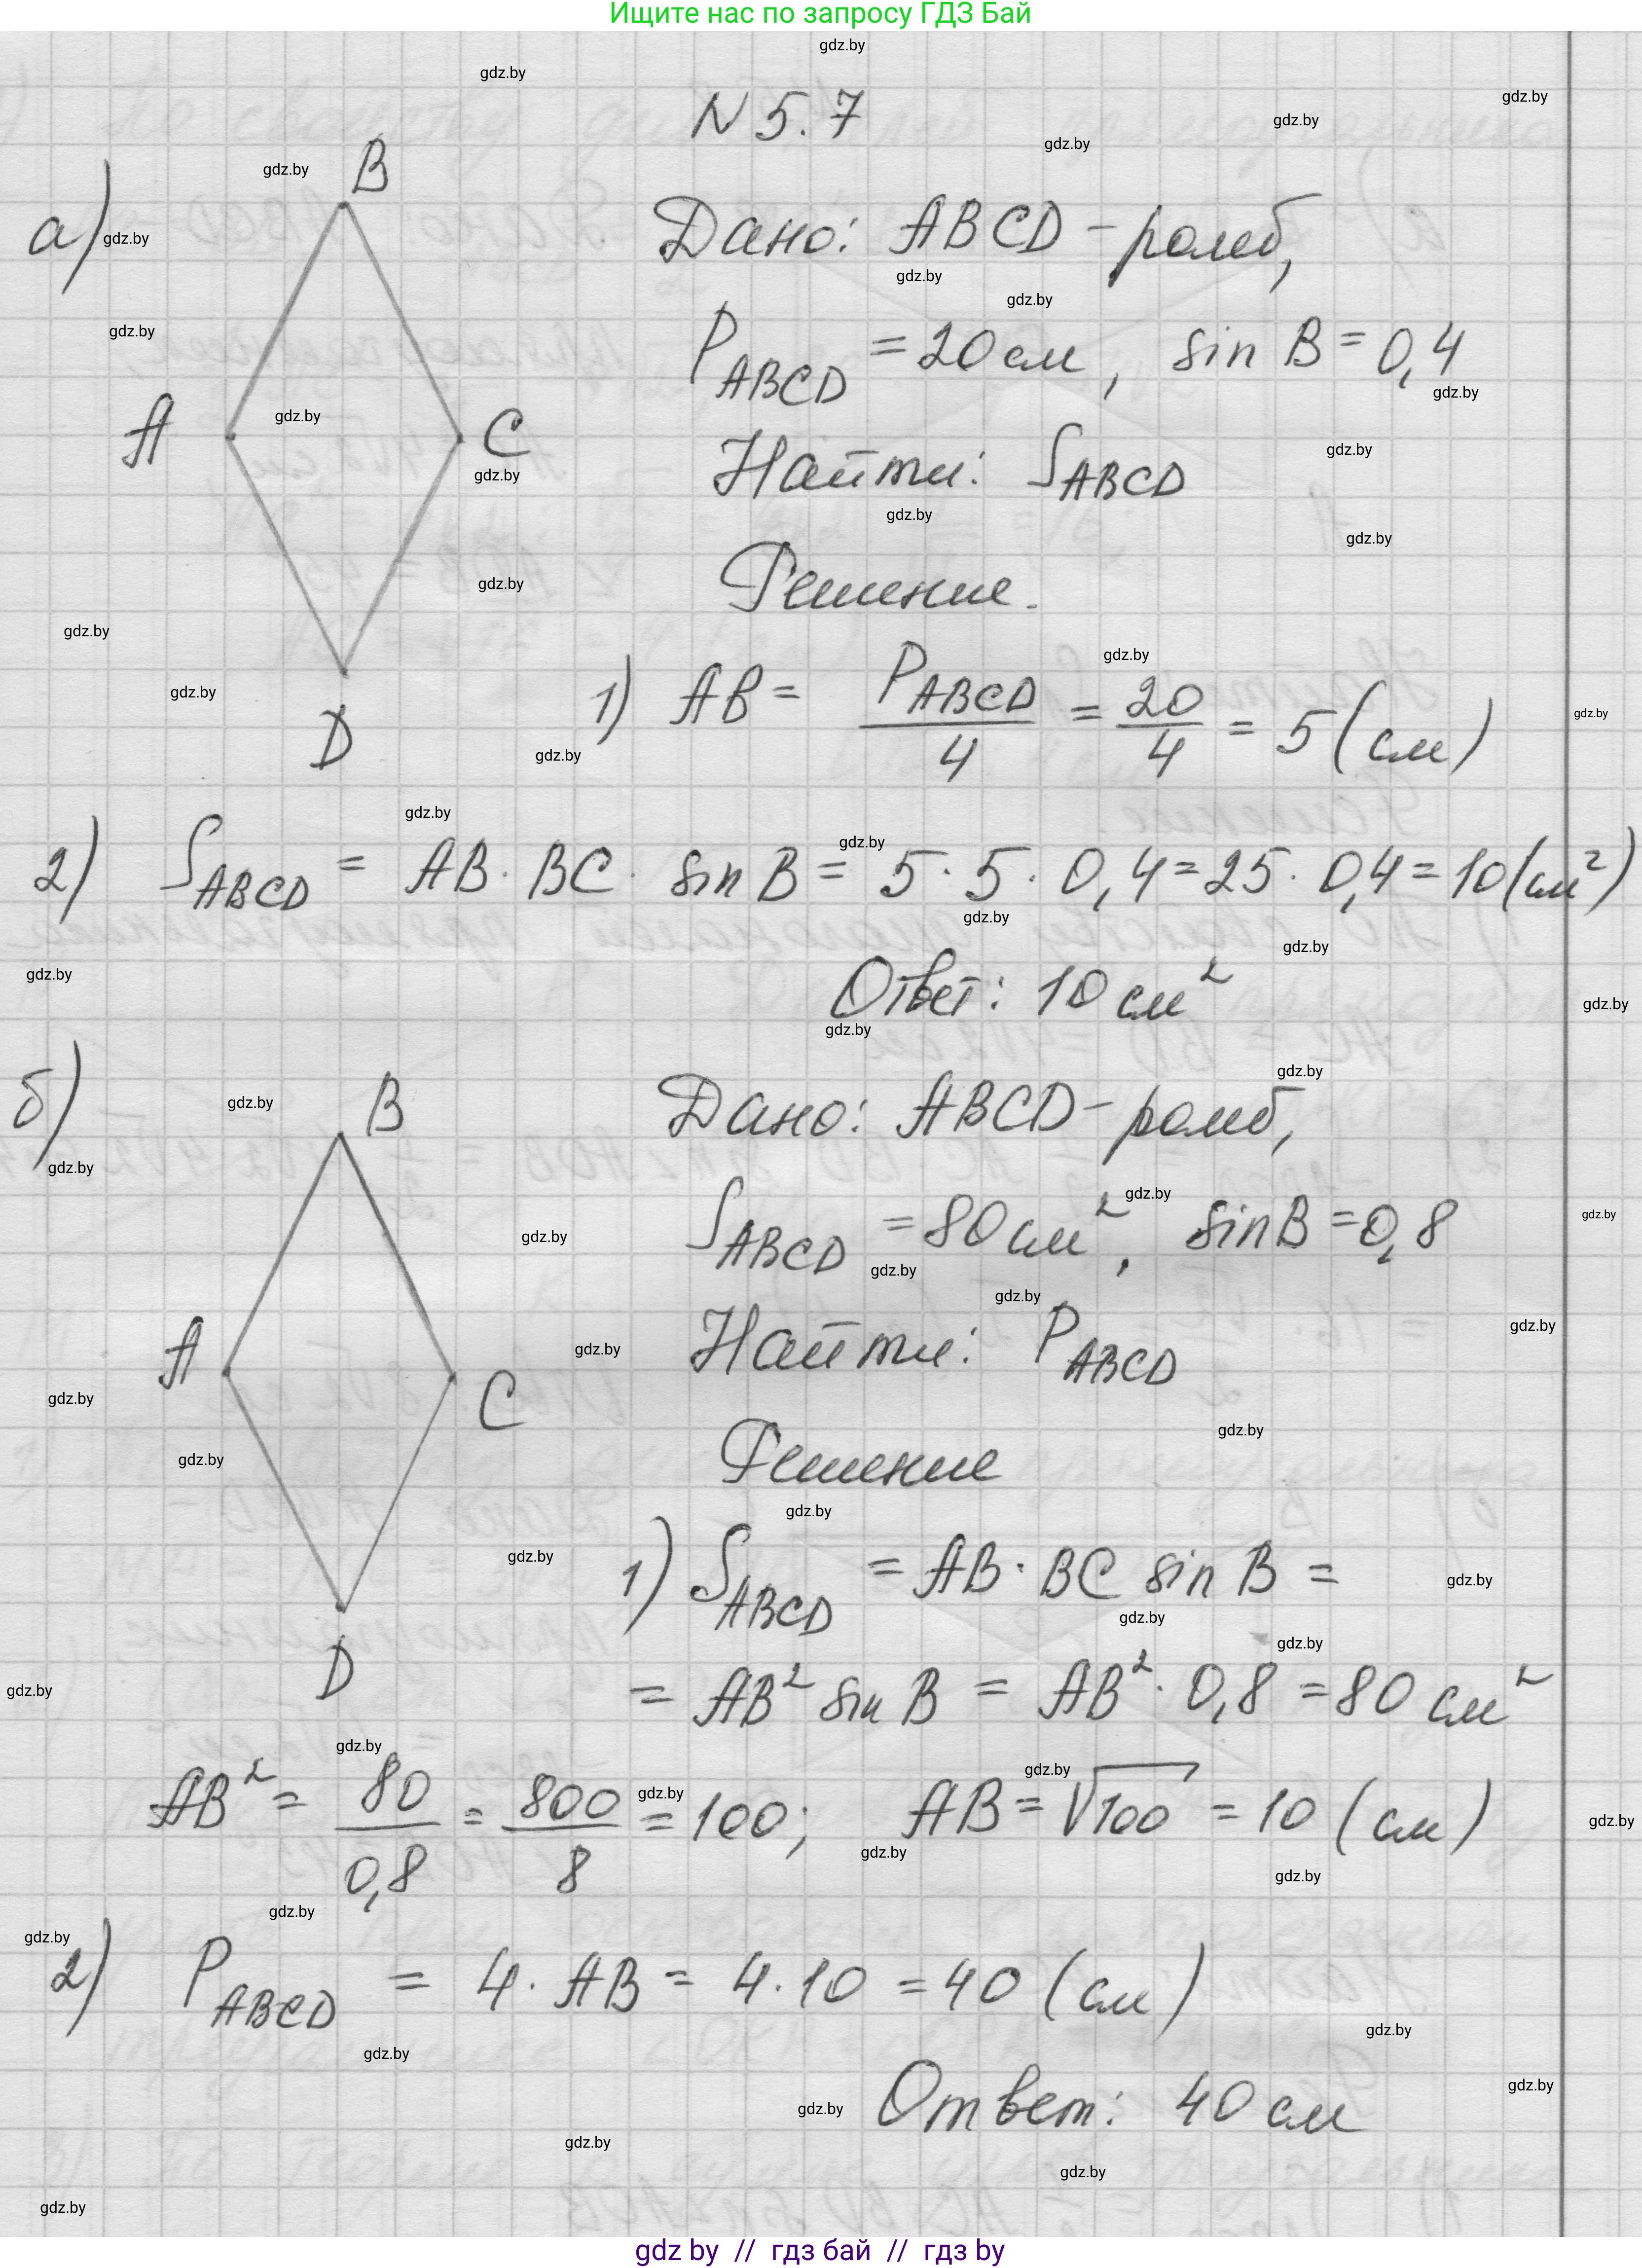 Ищите нас по запросу ГДЗ Бай
N 5.7
а)
B
A
C
D
Дано: ABCD - ромб,
P_ABCD = 20 см, sin B = 0,4
Найти: S_ABCD
Решение.
1) AB = P_ABCD / 4 = 20 / 4 = 5 (см)
2) S_ABCD = AB · BC · sin B = 5 · 5 · 0,4 = 25 · 0,4 = 10 (см²)
Ответ: 10 см²
б)
B
A
C
D
Дано: ABCD - ромб,
S_ABCD = 80 см², sin B = 0,8
Найти: P_ABCD
Решение
1) S_ABCD = AB · BC sin B =
= AB² sin B = AB² · 0,8 = 80 см²
AB² = 80 / 0,8 = 800 / 8 = 100; AB = √100 = 10 (см)
2) P_ABCD = 4 · AB = 4 · 10 = 40 (см)
Ответ: 40 см
gdz by // гдз бай // гдз by